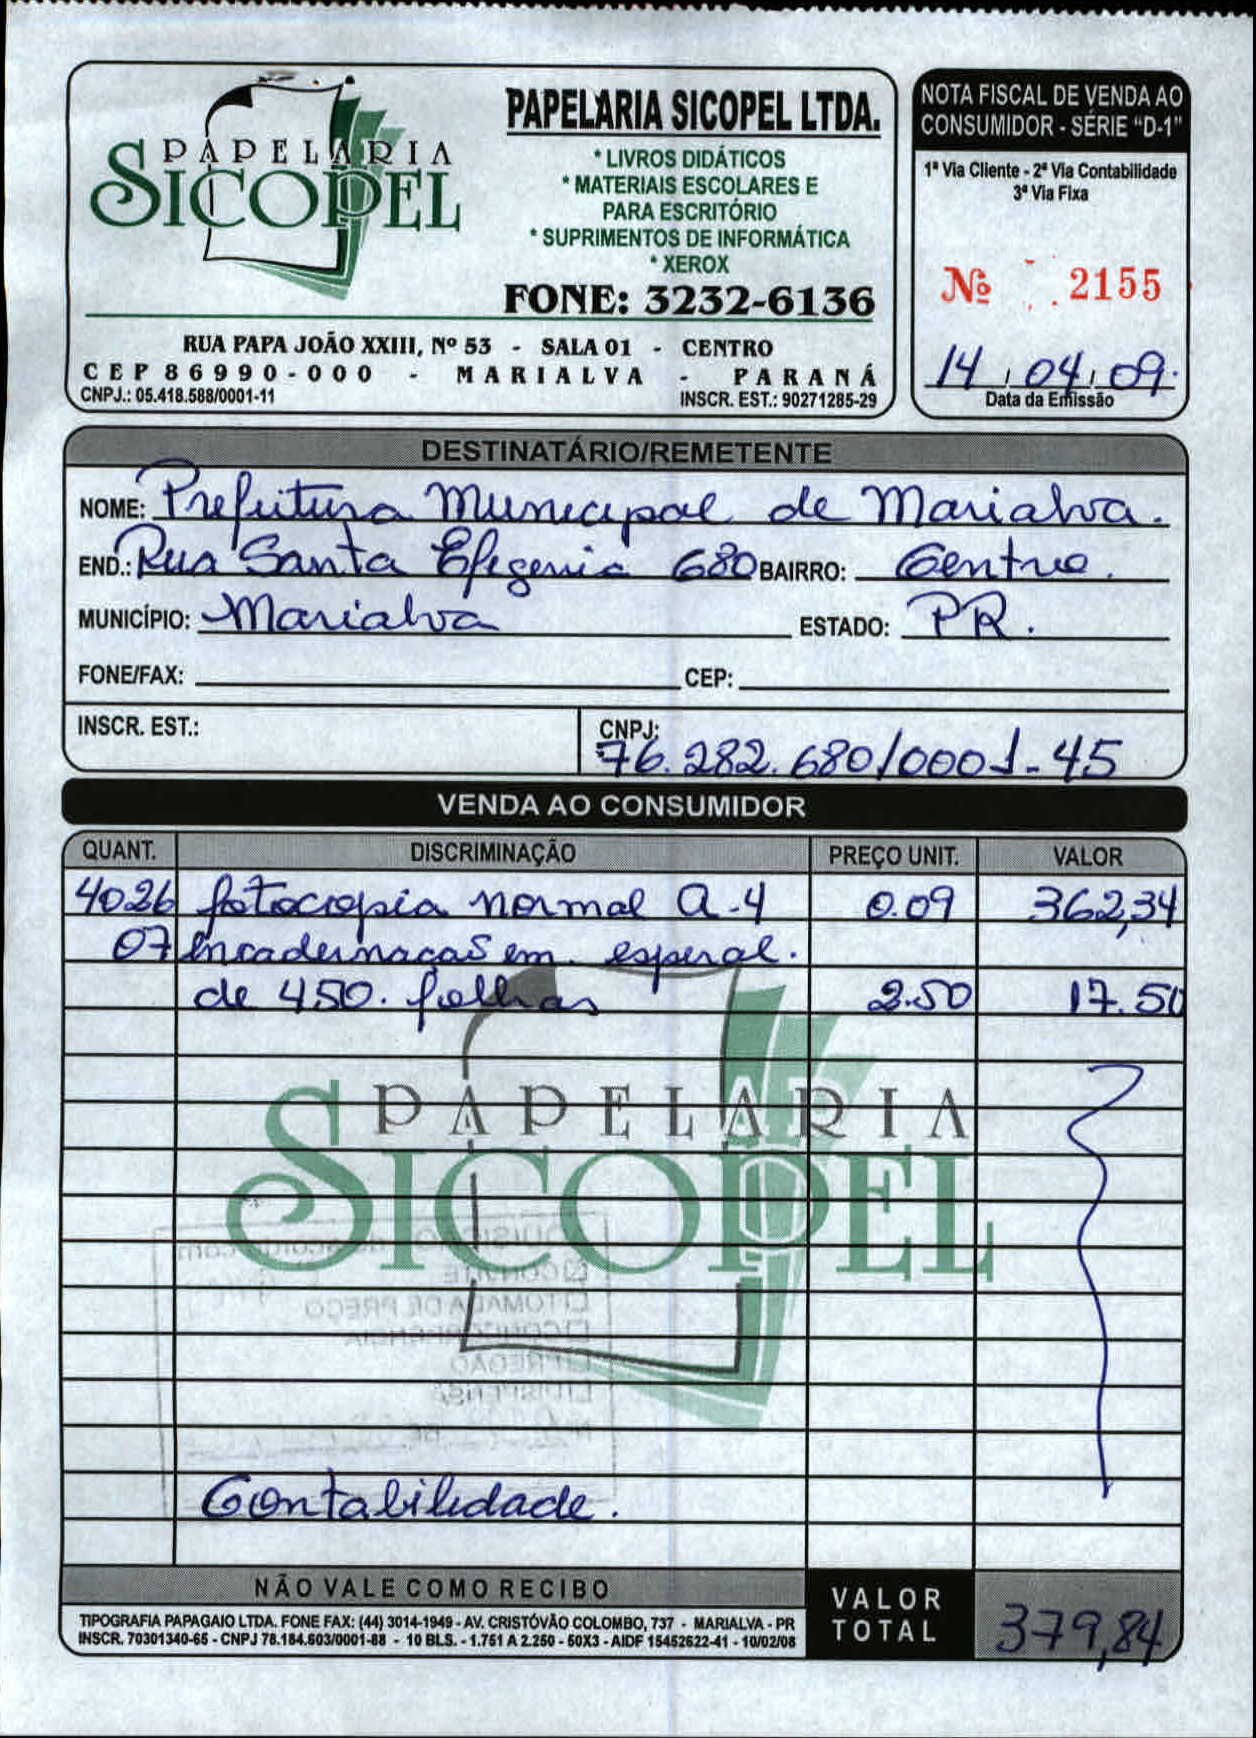 PAPELARIA
SICOPEL
PAPELARIA SICOPEL LTDA.
* LIVROS DIDÁTICOS
* MATERIAIS ESCOLARES E
PARA ESCRITÓRIO
* SUPRIMENTOS DE INFORMÁTICA
* XEROX
FONE: 3232-6136
RUA PAPA JOÃO XXIII, Nº 53 - SALA 01 - CENTRO
CEP 86990-000 - MARIALVA - PARANÁ
CNPJ.: 05.418.588/0001-11 INSCR. EST.: 90271285-29
NOTA FISCAL DE VENDA AO
CONSUMIDOR - SÉRIE "D-1"
1ª Via Cliente - 2ª Via Contabilidade
3ª Via Fixa
Nº 2155
14 04 09
Data da Emissão
DESTINATÁRIO/REMETENTE
NOME: Prefeitura Municipal de Marialva.
END.: Rua Santa Efegenia 680 BAIRRO: Centro.
MUNICÍPIO: Marialva ESTADO: PR.
FONE/FAX: CEP:
INSCR. EST.: CNPJ: 76.282.680/0001-45
VENDA AO CONSUMIDOR
QUANT. DISCRIMINAÇÃO PREÇO UNIT. VALOR
4026 fotocopia normal A-4 0.09 362,34
07 encadernaçaõ em esperal.
de 450. folhas 2.50 17.50
PAPELARIA
SICOPEL
Contabilidade.
NÃO VALE COMO RECIBO
TIPOGRAFIA PAPAGAIO LTDA. FONE FAX: (44) 3014-1949 - AV. CRISTÓVÃO COLOMBO, 737 - MARIALVA - PR
INSCR. 70301340-65 - CNPJ 78.184.603/0001-88 - 10 BLS. - 1.751 A 2.250 - 50X3 - AIDF 15452622-41 - 10/02/08
VALOR
TOTAL 379,84